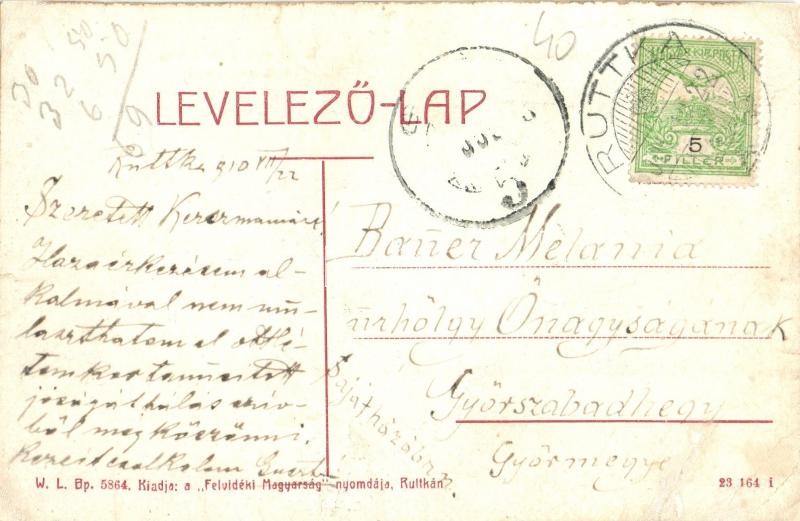 40
LEVELEZŐ-LAP
RUTTKA
MAGYAR KIR. POSTA
5
FILLÉR
Ruttka 910 VII/22
Szeretett Keresztmamám!
Hazaérkezésem al-
kalmával nem mu-
laszthatom el
jóságát hálás szív-
ből megköszönni.
Kezeit csókolom Guszti
Bauer Melania
úrhölgy Őnagyságának
Győrszabadhegy
Győrmegye
Saját házában
W. L. Bp. 5864. Kiadja: a „Felvidéki Magyarság" nyomdája, Ruttkán
23 164 i